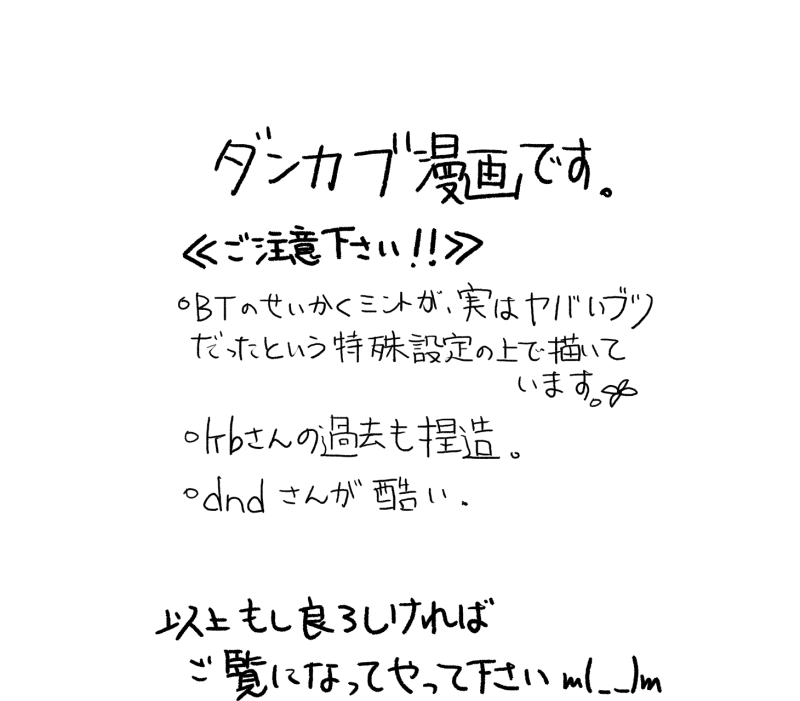 ダンカブ漫画です。
≪ご注意下さい!!≫
○BTのせいかくミントが、実はヤバいブツ
だったという特殊設定の上で描いて
います。
○krbさんの過去も捏造。
○dndさんが酷い.
以上もし良ろしければ
ご覧になってやって下さいm(_ _)m